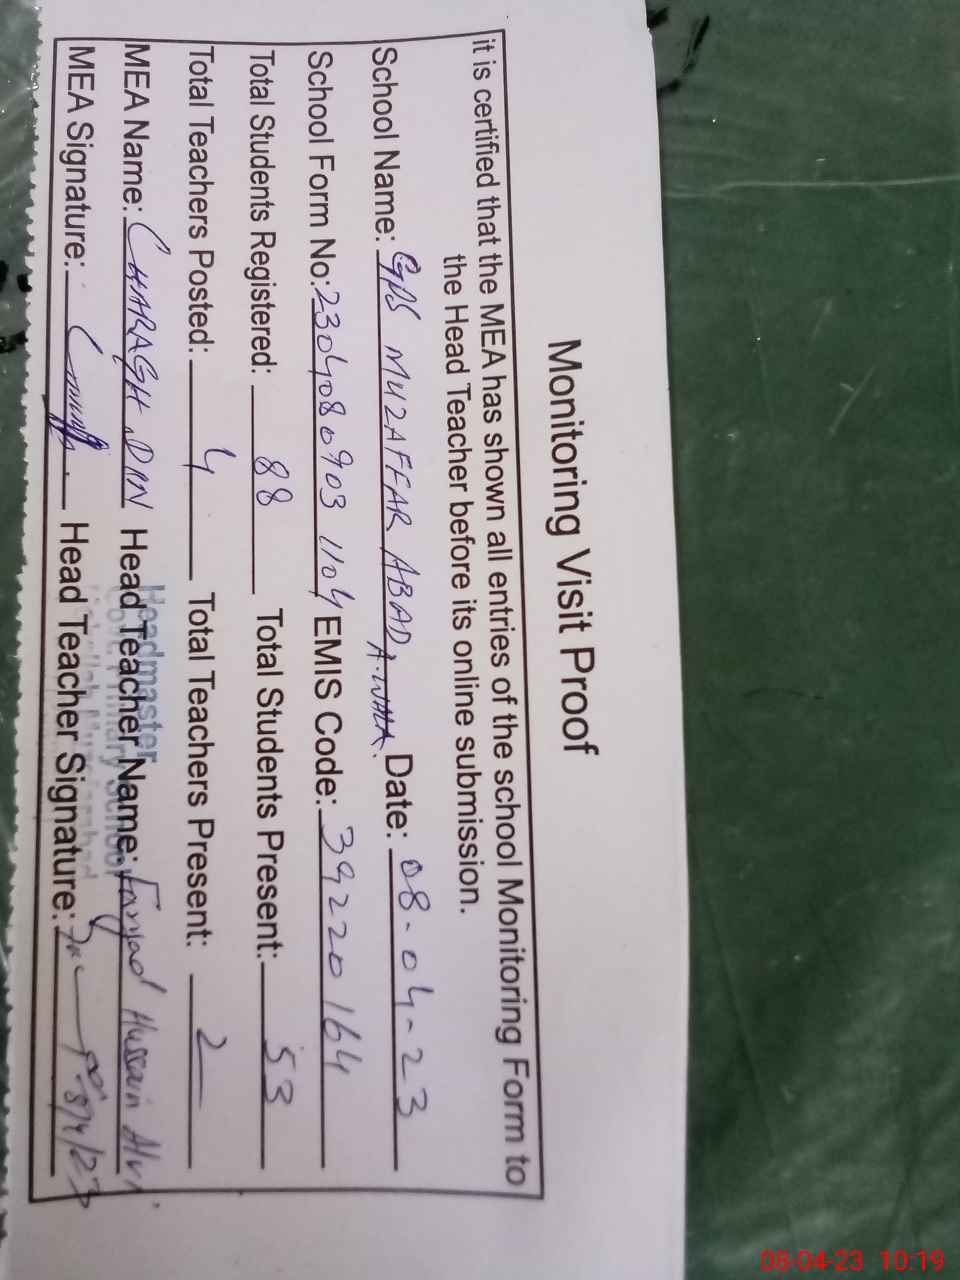 Monitoring Visit Proof
it is certified that the MEA has shown all entries of the school Monitoring Form to
the Head Teacher before its online submission.
School Name: GPS MUZAFFAR ABAD, A.WALA. Date: 08-04-23
School Form No: 2304080903 1104 EMIS Code: 39220164
Total Students Registered: 88 Total Students Present: 53
Total Teachers Posted: 4 Total Teachers Present: 2
MEA Name: CHARAGH DIN Head Teacher Name: Hussain Alvi
MEA Signature: Head Teacher Signature: 8/4/23
Headmaster
08-04-23 10:19